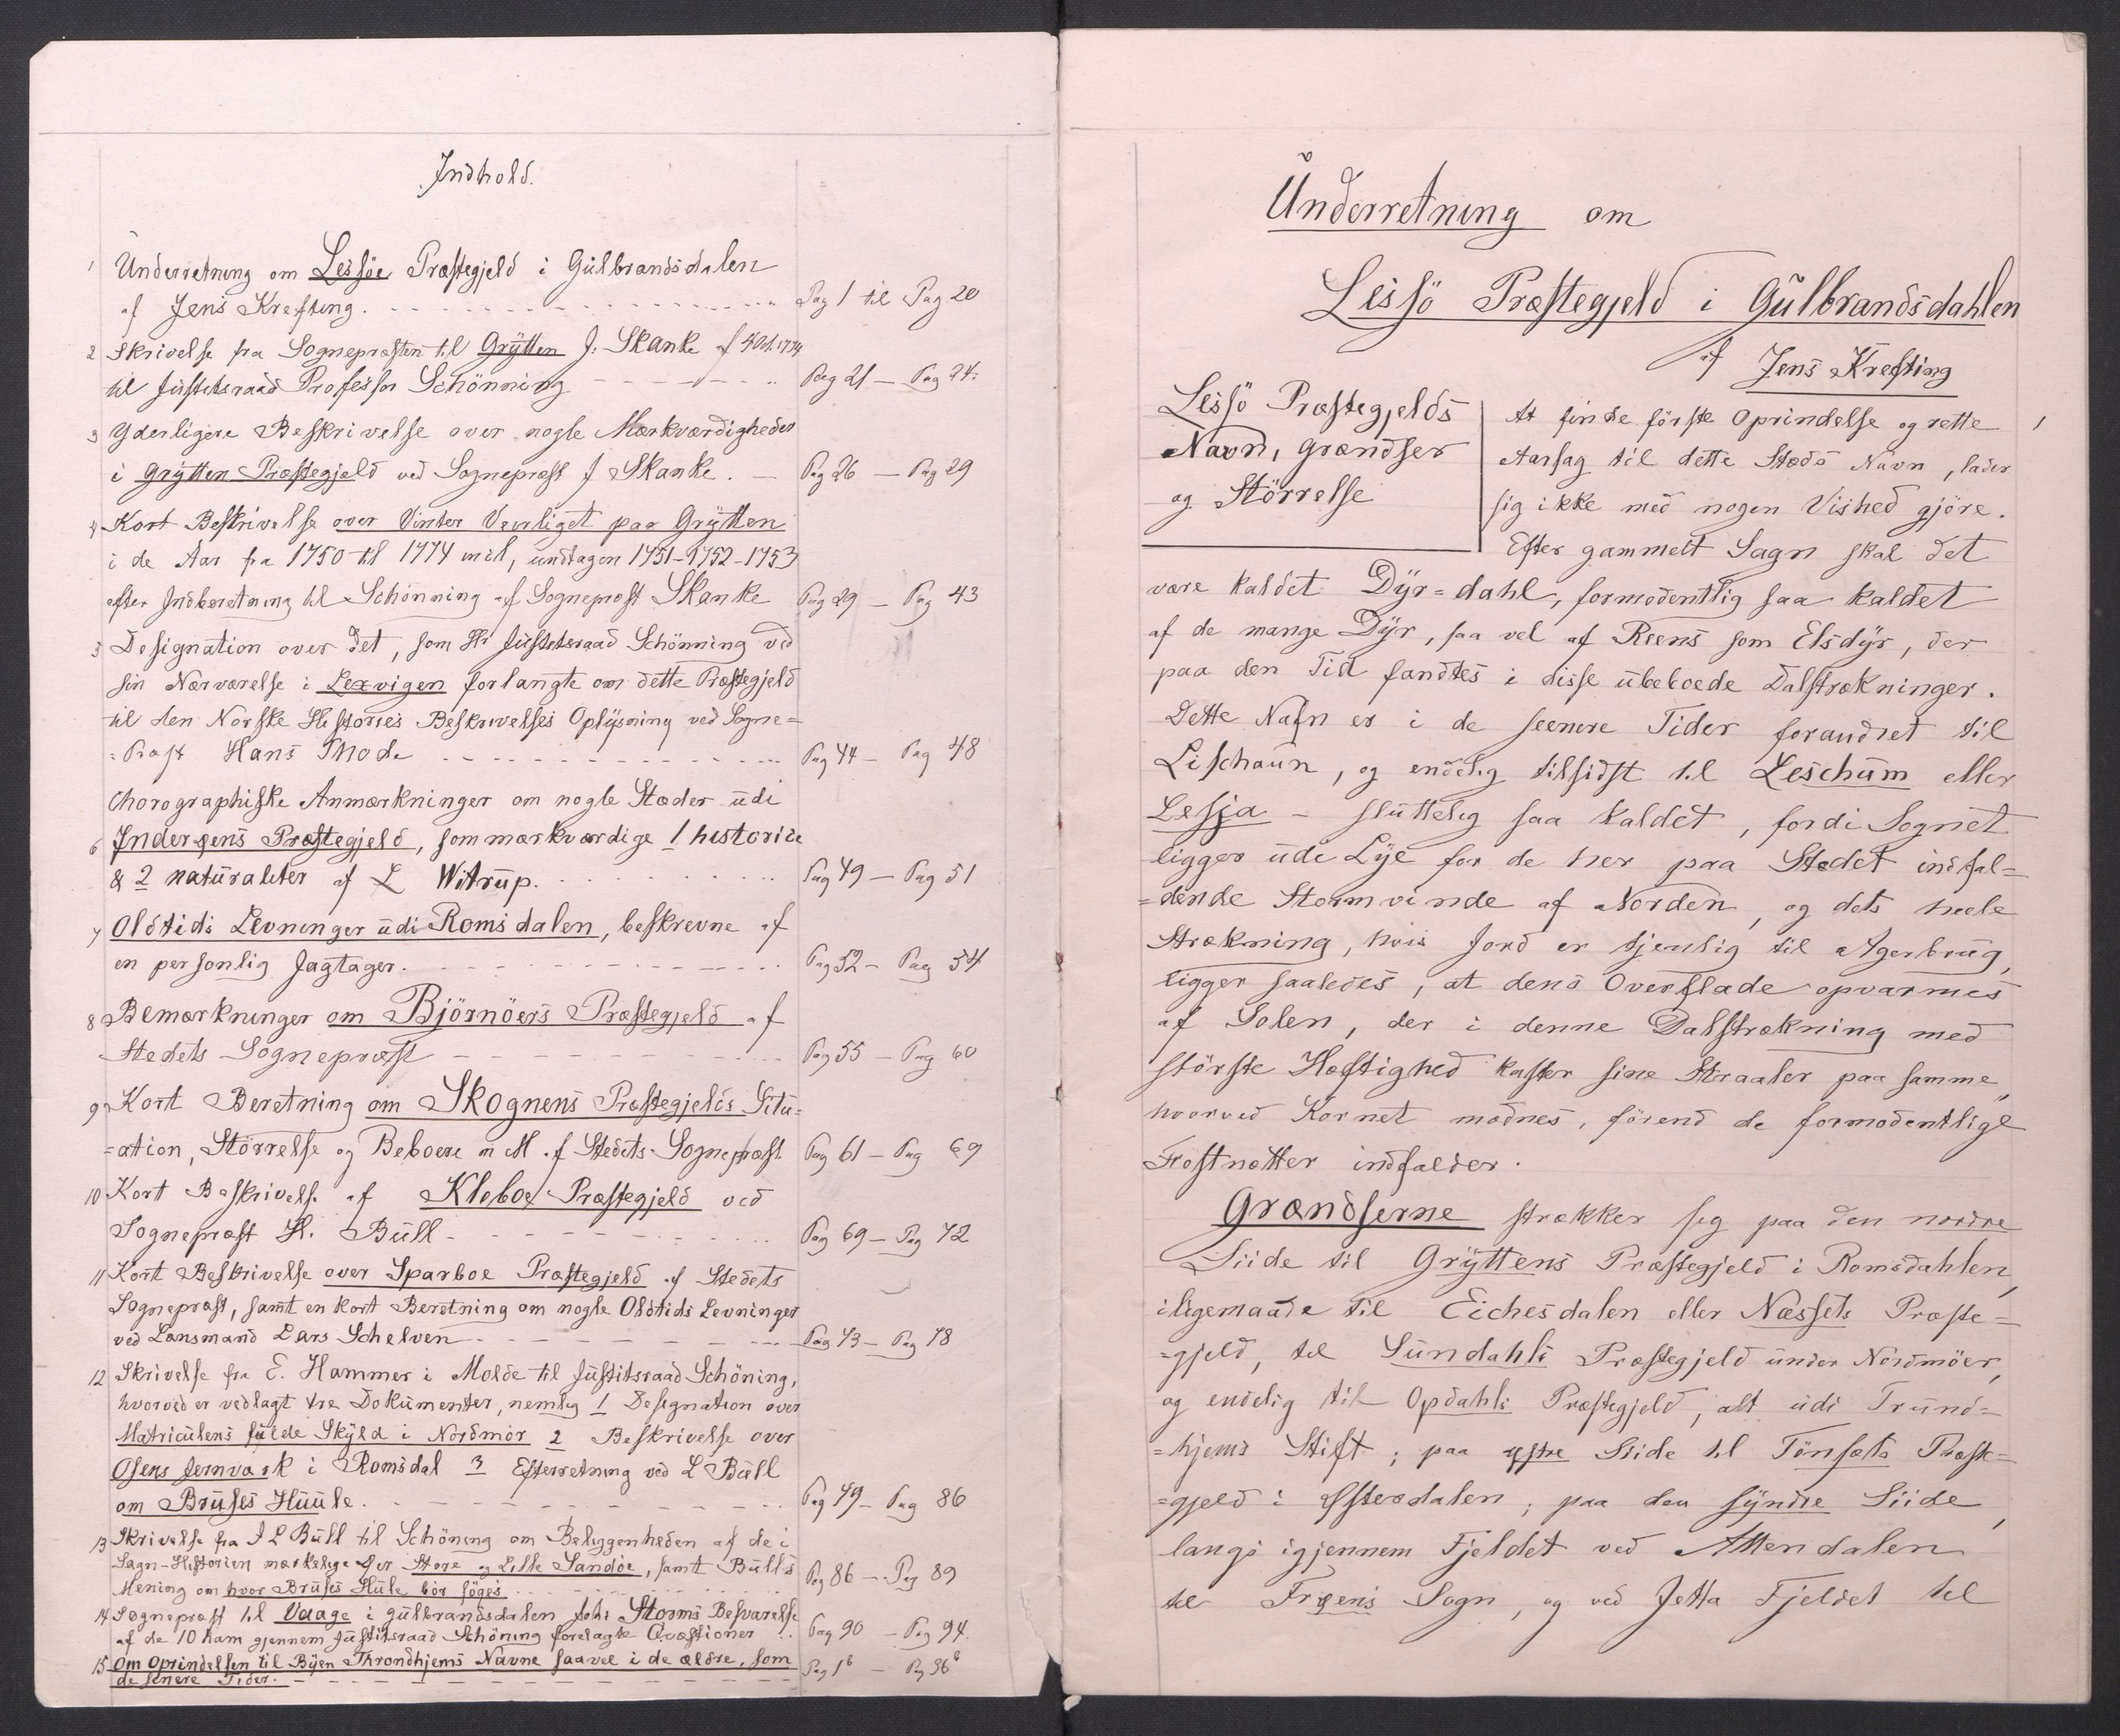 Indhold.
1 Underretning om Lessöe Præstegjeld i Gulbrandsdalen
af Jens Krefting. Pag 1 til Pag 20
2 Skrivelse fra Sognepræsten til Grytten J. Skanke af 1774
til Justitsraad Professor Schönning Pag 21 — Pag 24.
3 Yderligere Beskrivelse over nogle Mærkværdigheder
i Grytten Præstegjeld ved Sognepræst J Skanke. — Pag 26 — Pag 29
4 Kort Beskrivelse over Vinter Veirliget paa Grytten
i de Aar fra 1750 til 1774 incl, undtagen 1751-1752-1753
efter Indberetning til Schönning af Sognepræst Skanke Pag 29 — Pag 43
5 Designation over det, som Hr Justitsraad Schönning ved
sin Nærværelse i Lexvigen forlangte om dette Præstegjeld
til den Norske Histories Beskrivelses Oplysning ved Sogne=
=Præst Hans Thode Pag 44 — Pag 48
Chorographiske Anmærkninger om nogle Stæder udi
6 Inderøens Præstegjeld, som mærkværdige 1 historice
& 2 naturaliter af L Witrup. Pag 49 — Pag 51
7 Oldtids Levninger udi Romsdalen, beskrevne af
en personlig Jagtager. Pag 52 — Pag 54
8 Bemærkninger om Björnöers Præstegjeld af
Stedets Sognepræst Pag 55 — Pag 60
9 Kort Beretning om Skognens Præstegjelds Situ=
=ation, Störrelse og Beboere m M af Stedets Sognepræst Pag 61 — Pag 69
10 Kort Beskrivelse af Kleboe Præstegjeld ved
Sognepræst H. Bull Pag 69 — Pag 72
11 Kort Beskrivelse over Sparboe Præstegjeld af Stedets
Sognepræst, samt en kort Beretning om nogle Oldtids Levninger
ved Lænsmand Lars Schelven Pag 73 — Pag 78
12 Skrivelse fra E. Hammer i Molde til Justitsraad Schöning,
hvorved er vedlagt tre Dokumenter, nemlig 1 Designation over
Matriculens fulde Skyld i Nordmör 2 Beskrivelse over
Osens Jernværk i Romsdal 3 Efterretning ved L Bull
om Bruses Huule. Pag 79 — Pag 86
13 Skrivelse fra J L Bull til Schöning om Beliggenheden af de i
Sagn-Historien mærkelige Øer Store og Lille Sandöe, samt Bull's
Mening om hvor Bruses Hule bör söges Pag 86 — Pag 89
14 Sognepræst til Vaage i Gulbrandsdalen Joh: Storms Besvarelse
af de 10 ham gjennem Justitsraad Schöning forelagte Qvæstioner Pag 90 — Pag 94.
15 Om Oprindelsen til Byen Throndhjems Navne saavel i de ældre, som
de senere Tider. Pag 1b — Pag 36b
Underretning om
Lessö Præstegjeld i Gulbrandsdahlen
af Jens Krefting
Lessö Præstegjelds
Navn, Grændser
og Störrelse
At finde förste Oprindelse og rette 1
Aarsag til dette Stæds Navn, lader
sig ikke med nogen Vished gjöre.
Efter gammelt Sagn skal det
være kaldet Dyr=dahl, formodentlig saa kaldet
af de mange Dyr, saa vel af Reens som Elsdyr, der
paa den Tid fandtes i disse ubeboede Dalstrækninger.
Dette Nafn er i de seenere Tider forandret til
Lischaun, og endelig tilsidst til Leschum eller
Lesja – sluttelig saa kaldet, fordi Sognet
ligger udi Lye for de her paa Stedet indfal=
=dende Stormvinde af Norden, og dets heele
Strækning, hvis Jord er tjenlig til Agerbrug,
ligger saaledes, at dens Overflade opvarmes
af Solen, der i denne Dalstrækning med
störste Hæftighed kaster sine Straaler paa samme,
hvorved Kornet modnes, förend de formodentlige
Frostnætter indfalder.
Grændserne strækker sig paa den nordre
Siide til Gryttens Præstegjeld i Romsdahlen,
iligemaade til Eichesdalen eller Næssets Præste=
=gjeld, til Sundahls Præstegjeld under Nordmöer,
og endelig til Opdahls Præstegjeld, alt udi Trund=
=hjems Stift; paa østre Siide til Tönsæts Præst=
=gjeld i Østerdalen; paa den syndre Siide,
langs igjennem Fjeldet ved Attendalen
til Frøens Sogn, og ved Jetta Fjeldet til